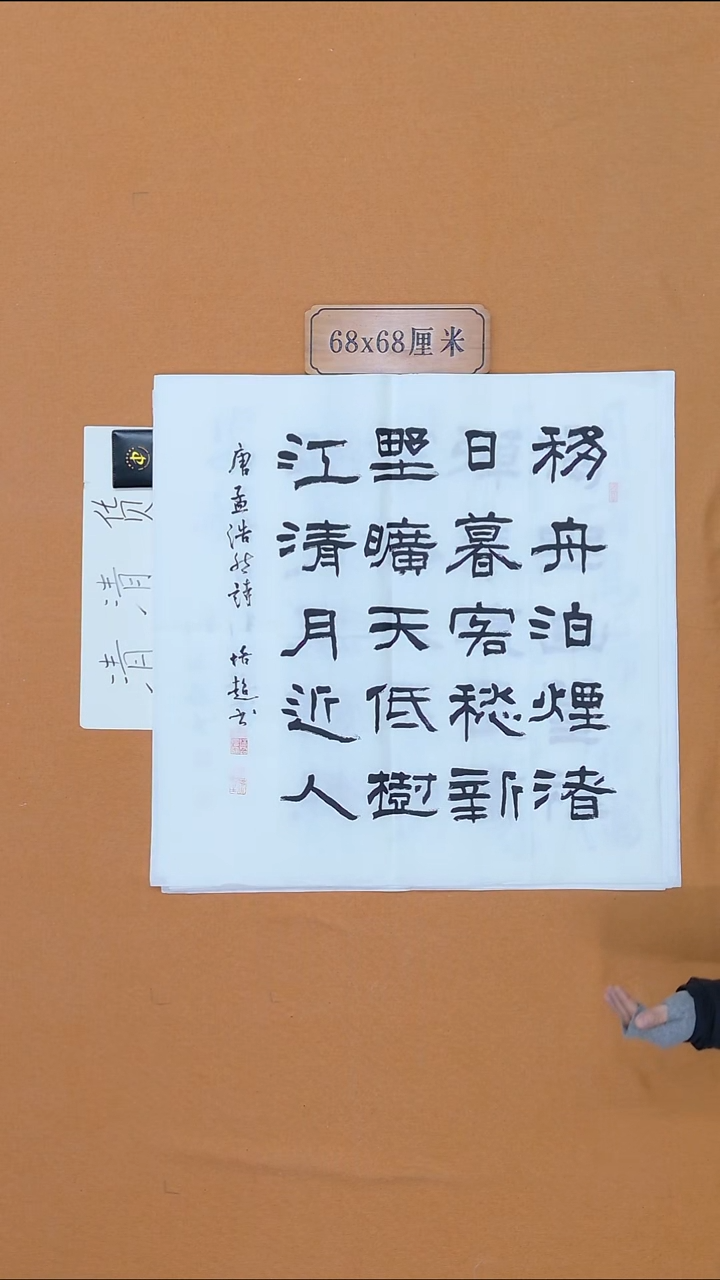 68x68厘米
移舟泊煙渚
日暮客愁新
野曠天低樹
江清月近人
唐孟浩然詩 培超书
清清货